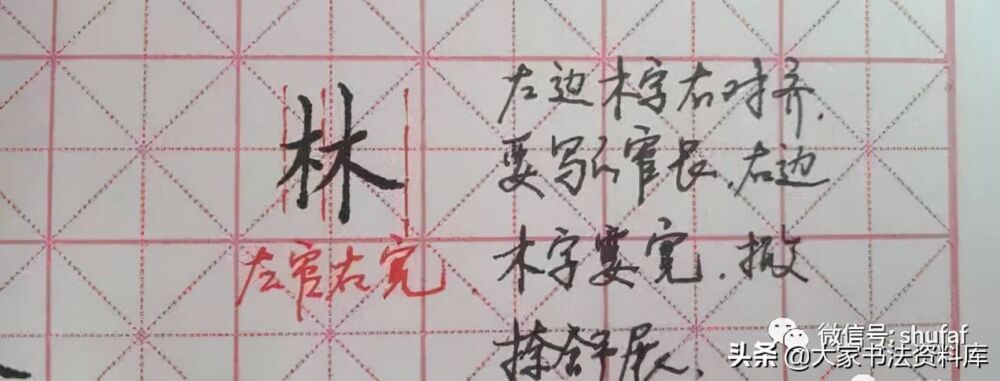 林
左窄右宽
左边木字右对齐,
要写的窄长,右边
木字要宽,撇
捺舒展.
微信号: shufaf
头条@大家书法资料库